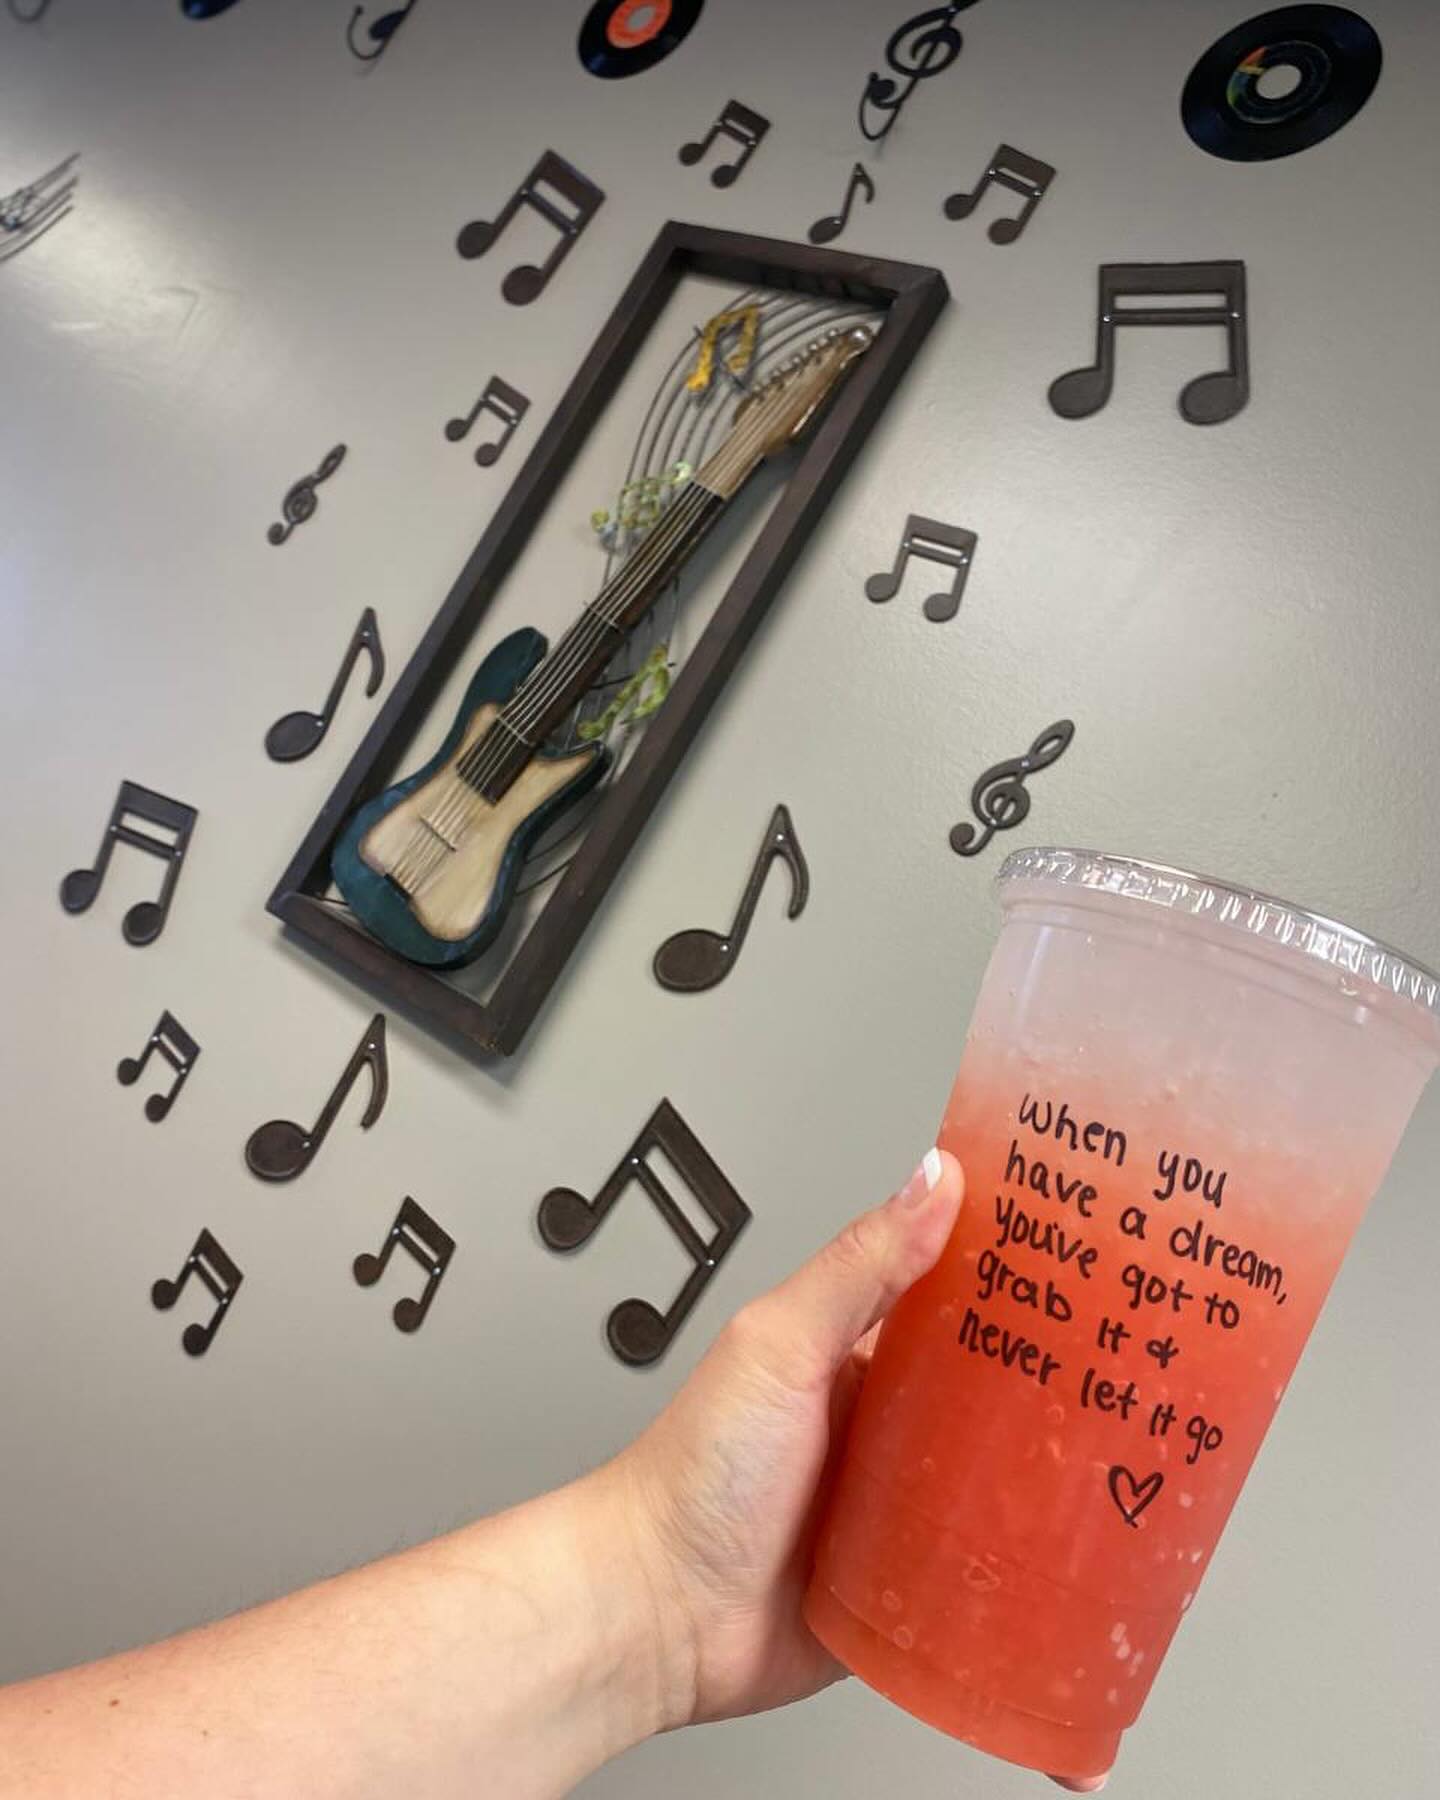 When you
have a dream,
you've got to
grab it &
never let it go
♡